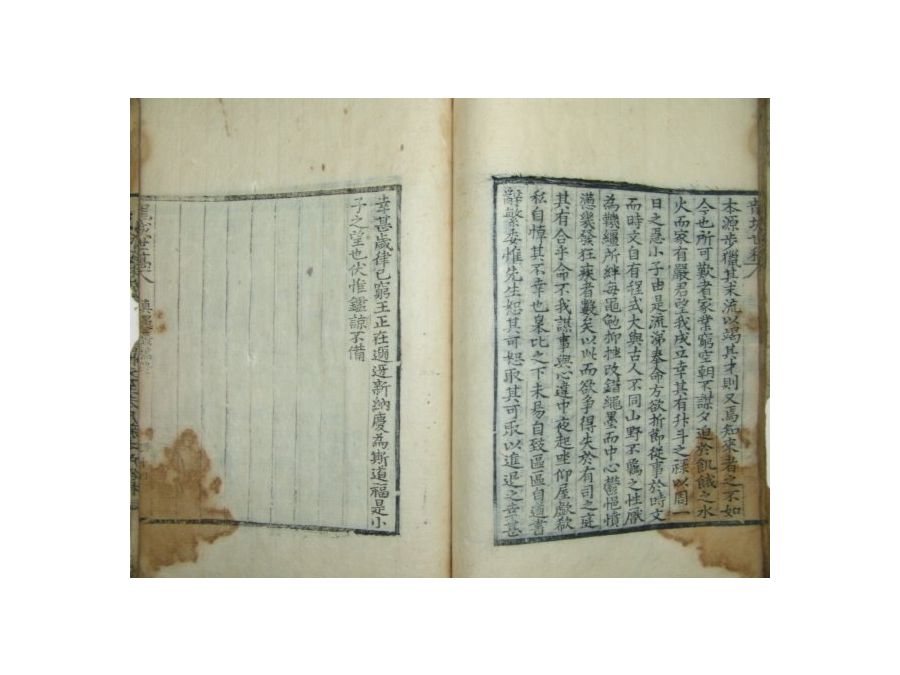 本源步獵其末流以竭其才則又焉知來者之不如
今也所可歎者家業窮空朝不謀夕迫於飢餓之水
火而家有嚴君望我成立幸其有升斗之祿以周一
日之急小子由是流涕奉命方欲折節從事於時文
而時文自有程式大與古人不同山野不羈之性厭
為韁纆所絆每黽勉抑挫改錯繩墨而中心鬱悒憤
懣幾發狂疾者數矣以此而欲爭得失於有司之庭
其有合乎命不我謀事與心違中夜起坐仰屋歔欷
私自悼其不幸也臯比之下未易自致區區自道書
辭繁委惟先生恕其可恕取其可取以進退之幸甚
幸甚歲律已窮王正在邇迓新納慶為斯道福是小
子之望也伏惟鑑諒不備